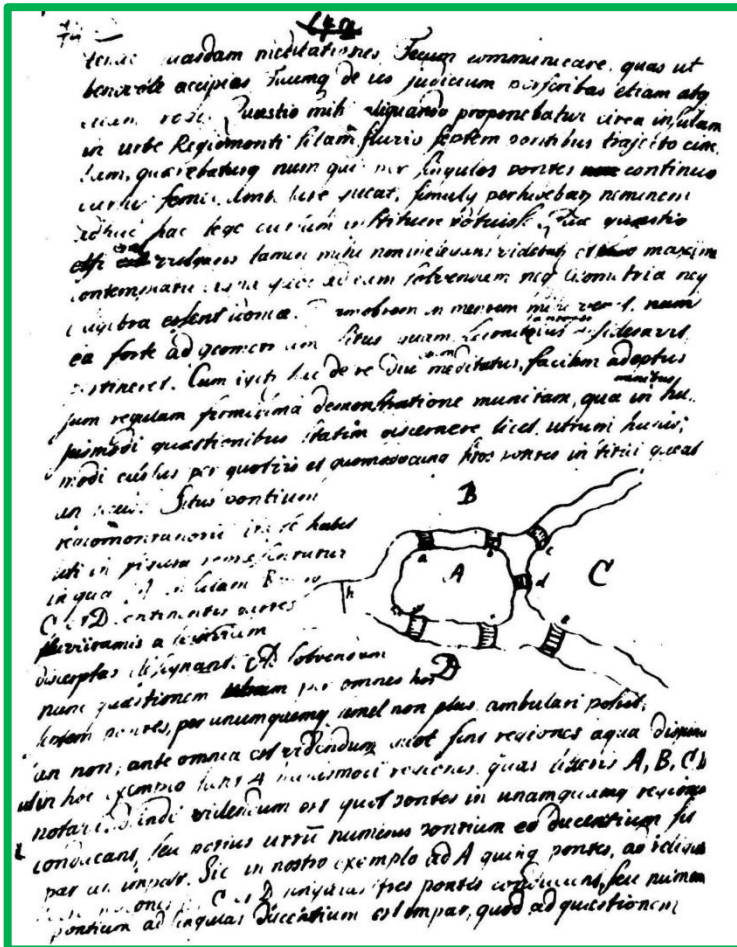 179
quasdam meditationes Tecum communicare, quas ut
benevole accipias Tuumq de iis judicium perscribas etiam atq
etiam rogo. Quaestio mihi aliquando proponebatur circa insulam
in urbe Regiomonti sitam fluvio septem pontibus trajecto cinc
tam, quaerebaturq num quis per singulos pontes continuo
cursu liceat, simulq perhibebatur neminem
adhuc hac lege cursum instituere potuisse. Quae quaestio
etsi vulgaris tamen mihi non videbatur maxime
ad eam solvendum neq Geometria neq
algebra essent idonea. Quamobrem in mentem mihi venit, num
ea forte ad geometriam situs quam desideravit
pertineret. Cum igitur hac de re diu meditatus, facilem adeptus
sum regulam firmissima demonstratione munitam, qua in hu
jusmodi quaestionibus statim discernere licet, utrum hujus
modi cursus per quot vis et quomodocunq pontes institui queat
an nequeat. Situs pontium
regiomontanorum ita se habet
uti in figura repraesentatur
in qua A insulam B
C et D continentis partes
fluvii ramis a se
discerptas designant. Ad solvendum
nunc quaestionem utrum per omnes hos
septem pontes, per unumquemq semel non plus ambulari possit,
an non; ante omnia est videndum quot sint regiones aqua
in hoc exemplo sunt 4 hujusmodi regiones quas litteris A, B, C, D
notavi. Deinde videndum est quot pontes in unamquamq regionem
conducant, seu potius utrum numerus pontium eo ducentium sit
par an impar. Sic in nostro exemplo ad A quinq pontes, ad reliquas
C et D singulas tres pontes conducunt, seu numerus
pontium ad singulas ducentium est impar, quod ad quaestionem
B
A
C
D
a
c
d
e
h